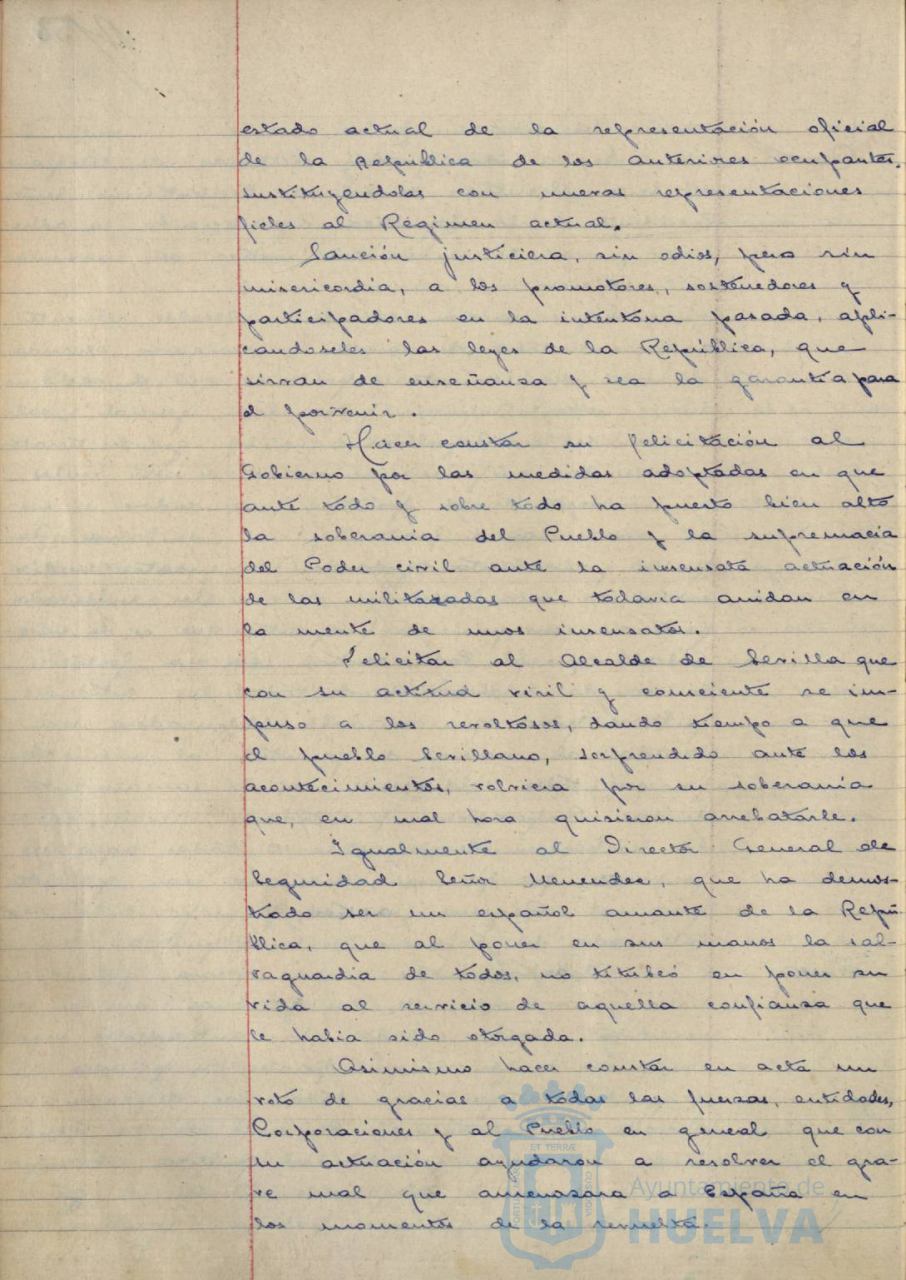 estado actual de la representación oficial
de la República de los anteriores ocupantes,
sustituyendolos con nuevas representaciones
fieles al Regimen actual.
Sanción justiciera, sin odios, pero sin
misericordia, a los promotores, sostenedores y
participadores en la intentona pasada, apli-
candoseles las leyes de la República, que
sirvan de enseñanza y sea la garantía para
el porvenir.
Hacer constar su felicitación al
Gobierno por las medidas adoptadas en que
ante todo y sobre todo ha puesto bien alto
la soberania del Pueblo y la supremacia
del Poder civil ante la insensata actuación
de las militaradas que todavia anidan en
la mente de unos insensatos.
Felicitar al Alcalde de Sevilla que
con su actitud viril y consciente se im-
puso a los revoltosos, dando tiempo a que
el pueblo Sevillano, sorprendido ante los
acontecimientos, volviera por su soberania
que, en mal hora quisieron arrebatarle.
Igualmente al Director General de
Seguridad Señor Menendez, que ha demos-
trado ser un español amante de la Repú-
blica, que al poner en sus manos la sal-
vaguardia de todos, no titubeó en poner su
vida al servicio de aquella confianza que
le habia sido otorgada.
Asimismo hacer constar en acta un
voto de gracias a todas las fuerzas, entidades,
Corporaciones y al Pueblo en general que con
su actuación ayudaron a resolver el gra-
ve mal que amenazara a España en
los momentos de la revuelta.
Ayuntamiento de
HUELVA